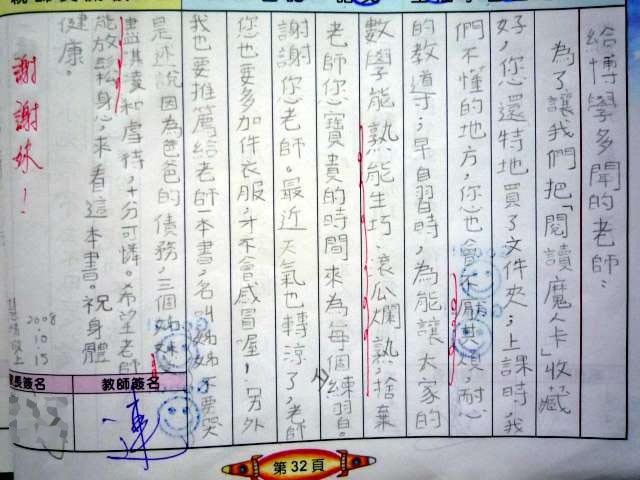 給博學多聞的老師：
為了讓我們把「閱讀魔人卡」收藏
好，您還特地買了文件夾；上課時，我
們不懂的地方，您也會不厭其煩，耐心
的教導；早自習時，為能讓大家的
數學能熟能生巧、滾瓜爛熟，捨棄
老師您寶貴的時間來為每個練習。
謝謝您老師。最近天氣也轉涼了，老師
您也要多加件衣服，才不會感冒喔！另外
我也要推薦給老師一本書，名叫姊姊不要哭
是述說因為爸爸的債務，三個姊妹
盡淇凌和虐待，十分可憐。希望老師
能放鬆身心，來看這本書。祝身體
健康。
謝謝妹！
2008
10
15
長簽名
教師簽名
第32頁